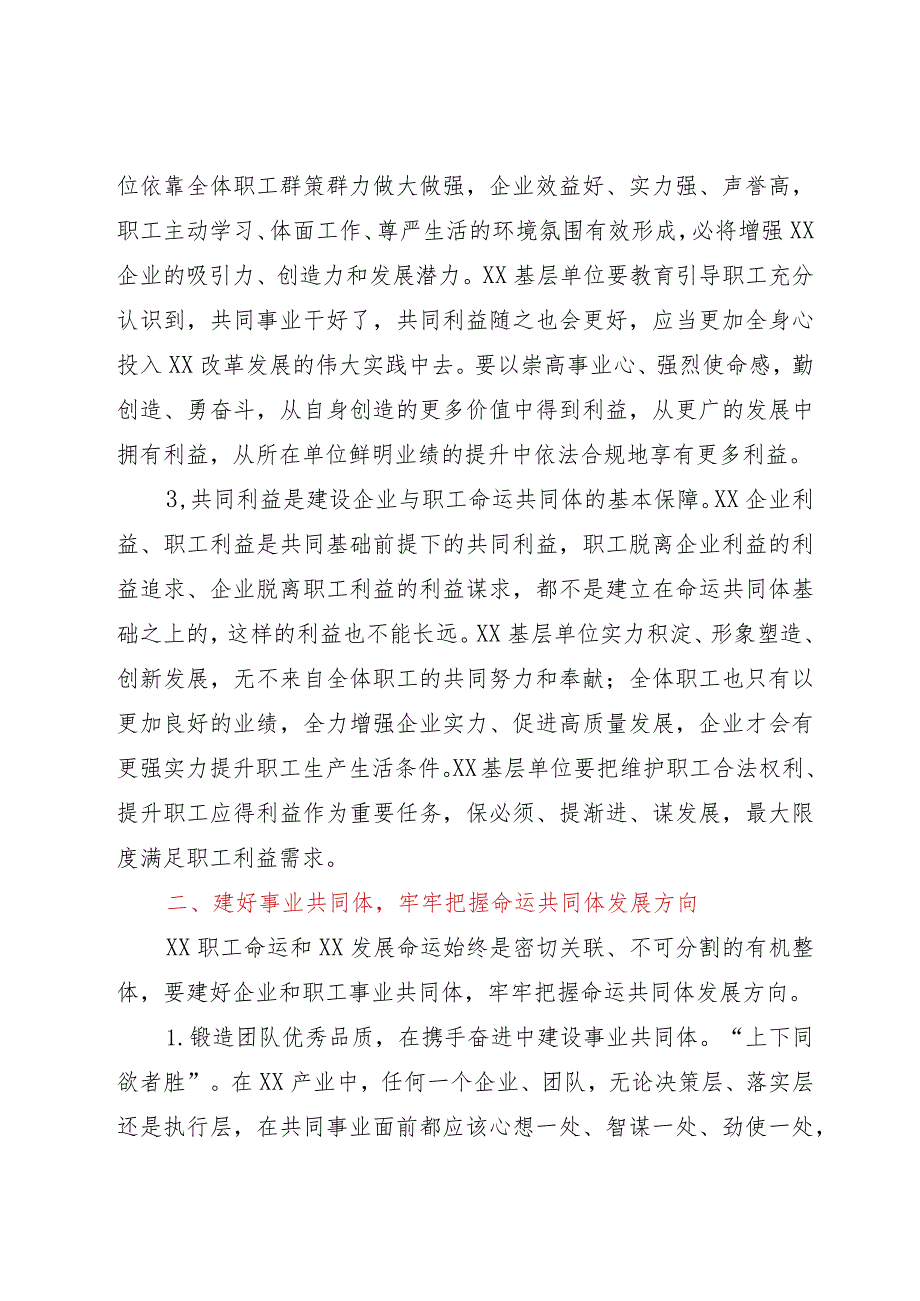 位依靠全体职工群策群力做大做强，企业效益好、实力强、声誉高，
职工主动学习、体面工作、尊严生活的环境氛围有效形成，必将增强 XX
企业的吸引力、创造力和发展潜力。XX 基层单位要教育引导职工充分
认识到，共同事业干好了，共同利益随之也会更好，应当更加全身心
投入 XX 改革发展的伟大实践中去。要以崇高事业心、强烈使命感，勤
创造、勇奋斗，从自身创造的更多价值中得到利益，从更广的发展中
拥有利益，从所在单位鲜明业绩的提升中依法合规地享有更多利益。
3,共同利益是建设企业与职工命运共同体的基本保障。XX 企业利
益、职工利益是共同基础前提下的共同利益，职工脱离企业利益的利
益追求、企业脱离职工利益的利益谋求，都不是建立在命运共同体基
础之上的，这样的利益也不能长远。XX 基层单位实力积淀、形象塑造、
创新发展，无不来自全体职工的共同努力和奉献；全体职工也只有以
更加良好的业绩，全力增强企业实力、促进高质量发展，企业才会有
更强实力提升职工生产生活条件。XX 基层单位要把维护职工合法权利、
提升职工应得利益作为重要任务，保必须、提渐进、谋发展，最大限
度满足职工利益需求。
二、建好事业共同体，牢牢把握命运共同体发展方向
XX 职工命运和 XX 发展命运始终是密切关联、不可分割的有机整
体，要建好企业和职工事业共同体，牢牢把握命运共同体发展方向。
1.锻造团队优秀品质，在携手奋进中建设事业共同体。“上下同
欲者胜”。在 XX 产业中，任何一个企业、团队，无论决策层、落实层
还是执行层，在共同事业面前都应该心想一处、智谋一处、劲使一处，